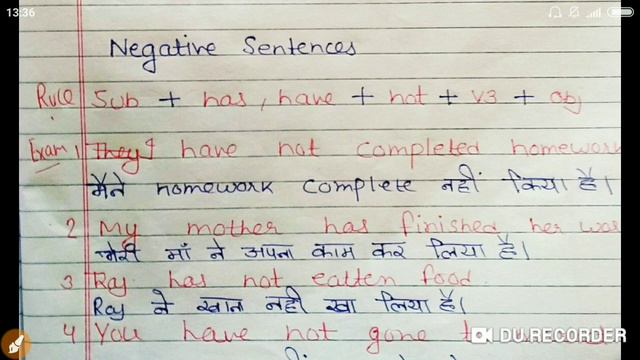 13:36
Negative Sentences
Rule Sub + has, have + not + V3 + obj
Exam 1 They I have not completed homework
मैने homework complete नहीं किया है।
2 My mother has finished her wor
मेरी माँ ने अपना काम कर लिया है।
3 Raj has not eatten food.
Raj ने खाना नही खा लिया है।
4 You have not gone t
DU RECORDER